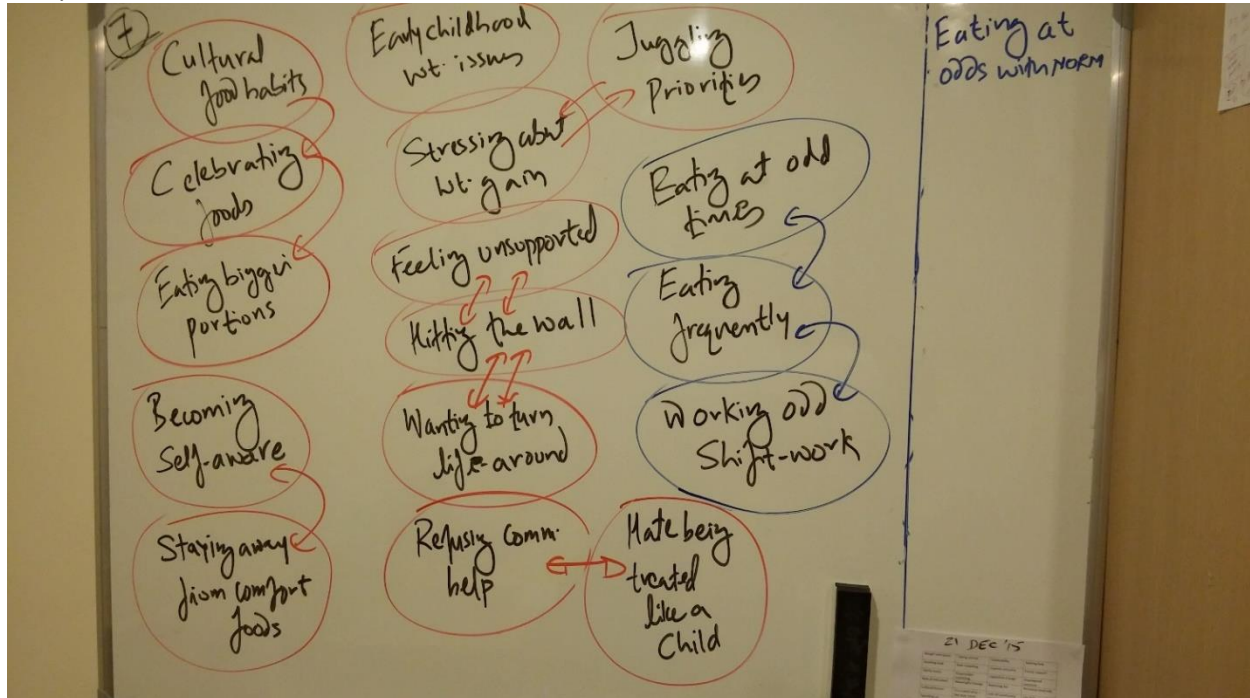 7
Cultural
food habits
Celebrating
foods
Eating bigger
portions
Becoming
Self-aware
Staying away
from comfort
foods
Early childhood
wt. issues
Stressing about
wt. gain
Feeling unsupported
Hitting the wall
Wanting to turn
life around
Refusing comm.
help
Juggling
Priorities
Eating at odd
times
Eating
frequently
Working odd
Shift-work
Hate being
treated
like a
Child
Eating at
odds with NORM
21 DEC '15